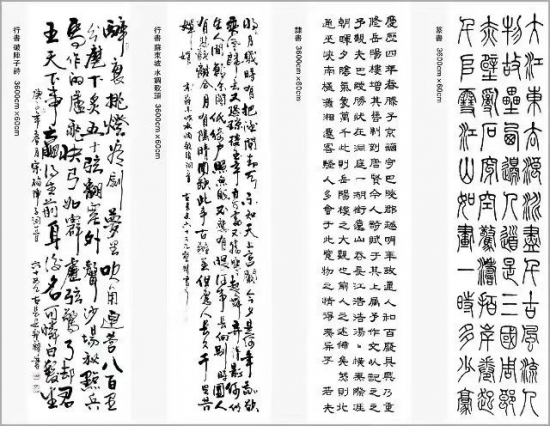 篆書 3600cm×60cm
大江東去浪淘盡千古風流人
物故壘西邊人道是三國周郎
赤壁亂石穿空驚濤拍岸卷起
千堆雪江山如畫一時多少豪
隸書 3600cm×60cm
慶歷四年春滕子京謫守巴陵郡越明年政通人和百廢具興乃重
修岳陽樓增其舊制刻唐賢今人詩賦于其上屬予作文以記之
予觀夫巴陵勝狀在洞庭一湖銜遠山吞長江浩浩湯湯橫無際涯
朝暉夕陰氣象萬千此則岳陽樓之大觀也前人之述備矣然則北
通巫峽南極瀟湘遷客騷人多會于此覽物之情得無異乎 若夫
行書 蘇東坡 水調歌頭 3600cm×60cm
明月幾時有把酒問青天不知天上宮闕今夕是何年我欲
乘風歸去又恐瓊樓玉宇高處不勝寒起舞弄清影何似
在人間轉朱閣低綺戶照無眠不應有恨何事長向別時圓人
有悲歡離合月有陰晴圓缺此事古難全但願人長久千里共
行書 破陣子詩 3600cm×60cm
醉裏挑燈看劍夢回吹角連營八百里
分麾下炙五十弦翻塞外聲沙場秋點兵
馬作的盧飛快弓如霹靂弦驚了却君
王天下事贏得生前身後名可憐白髮生